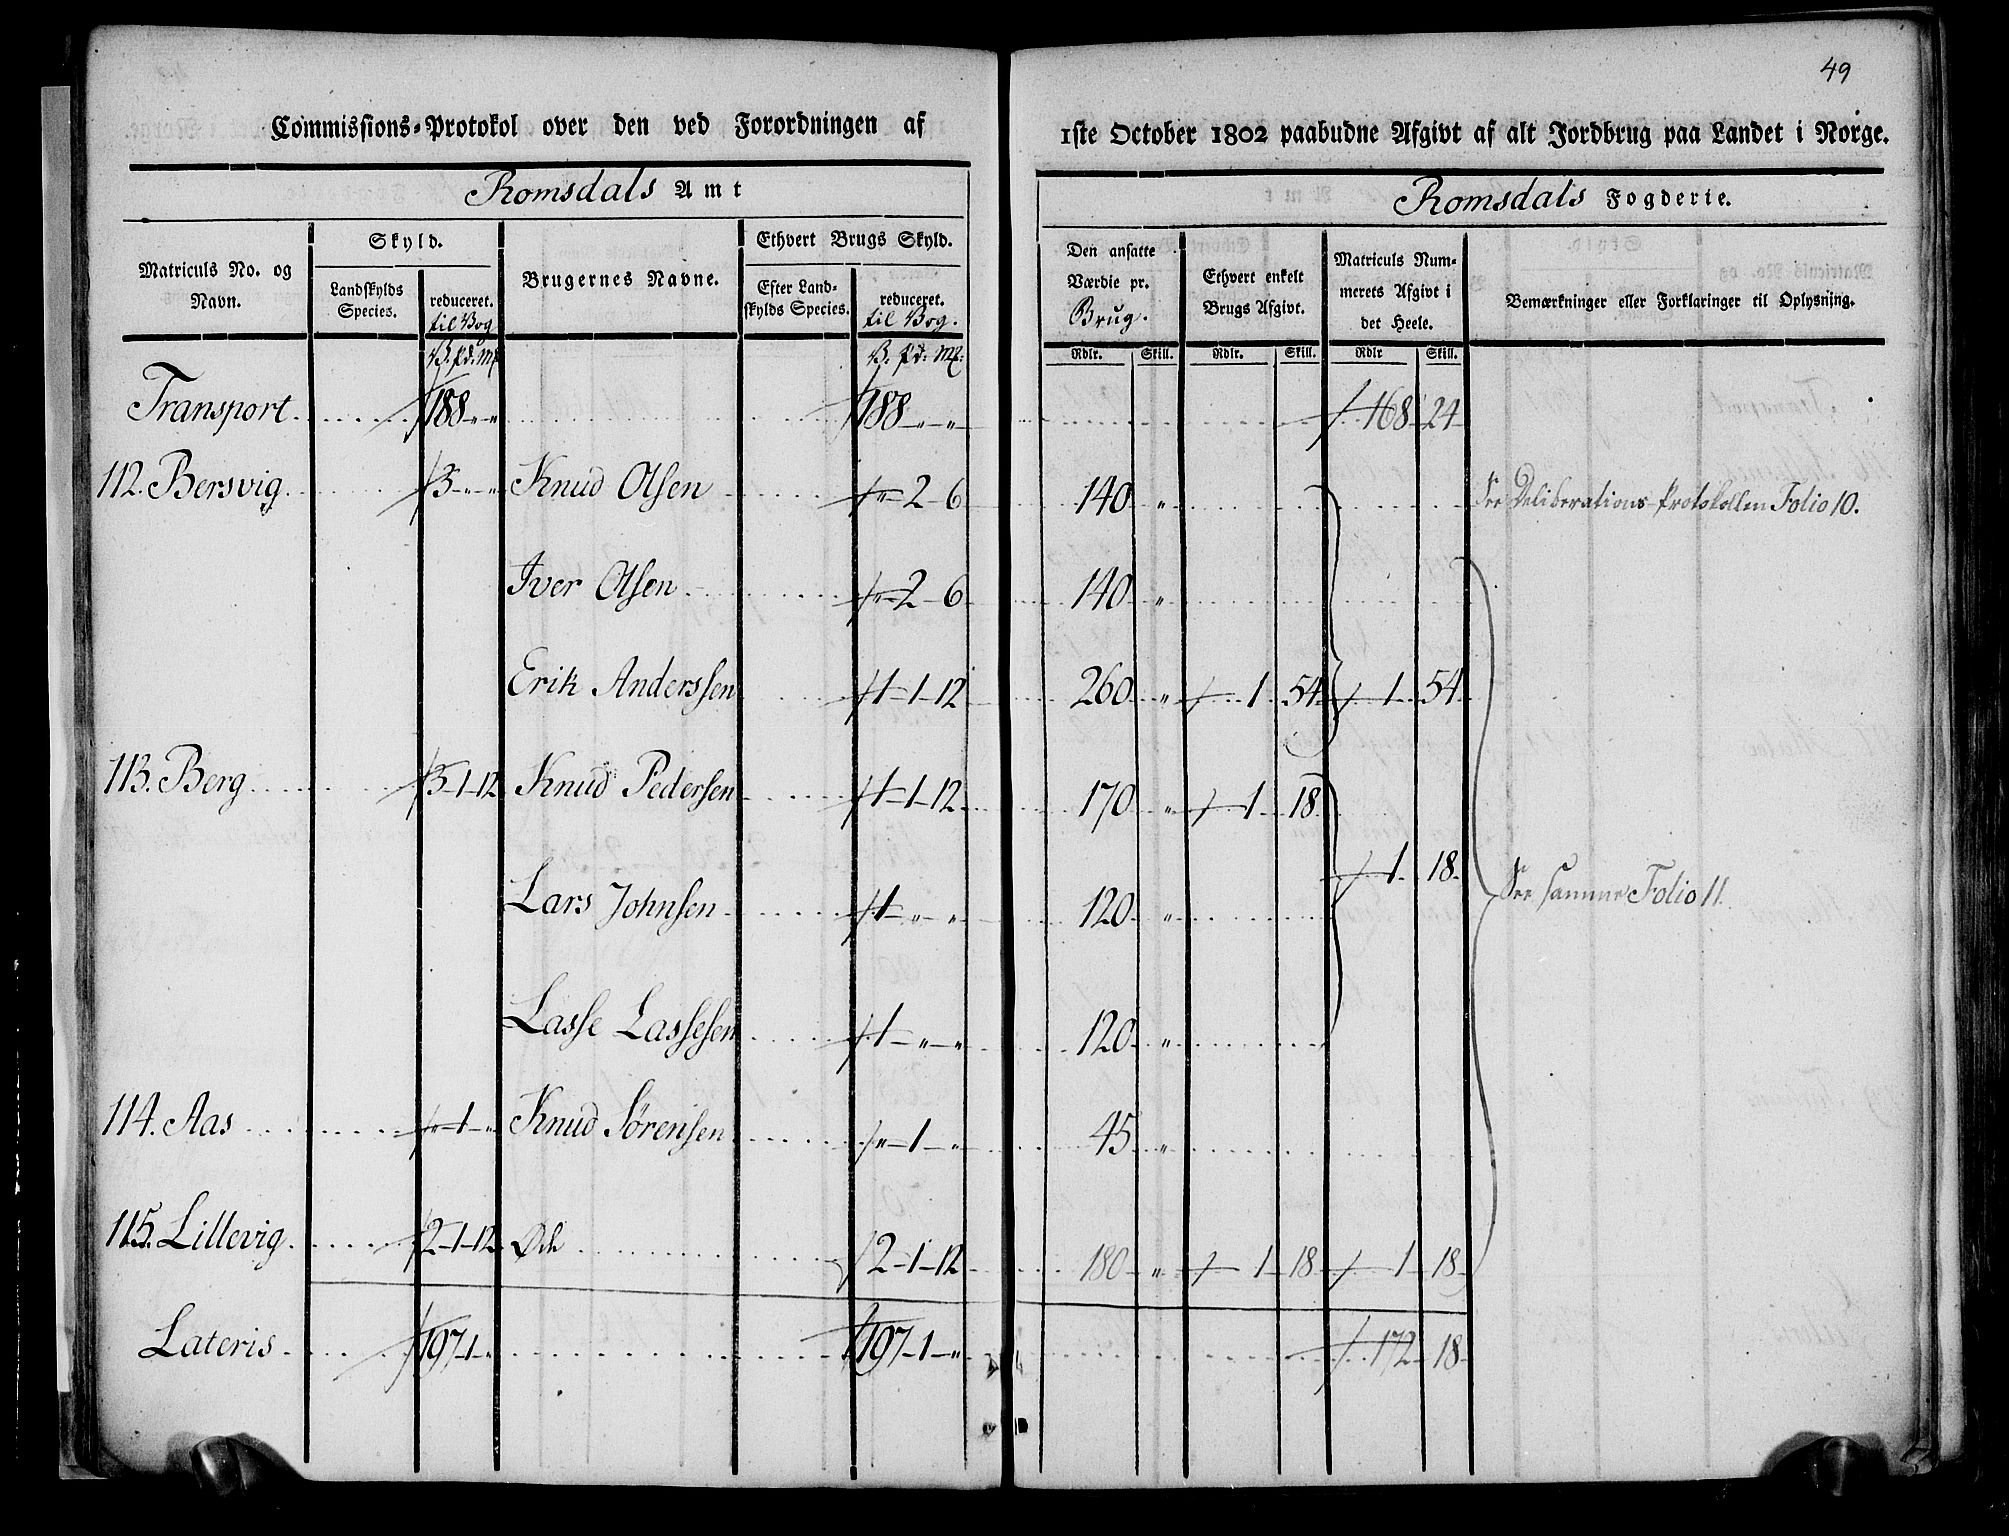 49
Commissions-Protokol over den ved Forordningen af 1ste October 1802 paabudne Afgivt af alt Jordbrug paa Landet i Norge.
Romsdals Amt
Romsdals Fogderie.
Matriculs No. og Navn.
Skyld.
Landskylds Species.
reduceret. til Vog
Brugernes Navne.
Ethvert Brugs Skyld.
Efter Landskylds Species.
reduceret. til Vog.
Den ansatte Værdie pr. Brug.
Ethvert enkelt Brugs Afgivt.
Matriculs Nummerets Afgivt i det Heele.
Bemærkninger eller Forklaringer til Oplysning.
V. pd: Mk V. pd: Mk: Rdlr. Skill. Rdlr. Skill. Rdlr Skill.
Transport 188 " " 188 " " 168 24
112. Bersvig 3 " " Knud Olsen " 2 6 140 " See Deliberations-Protokollen Folio 10.
Iver Olsen " 2 6 140 "
Erik Anderssen 1-1-12 260 " 1 54 1 54
113. Berg 3-1-12 Knud Pedersen 1-1-12 170 " 1 18
1 18 See samme Folio 11.
Lars Johnsen 1 " " 120 "
Lasse Lassesen 1 " " 120 "
114. Aas " 1 " Knud Sørensen " 1 " 45 "
115. Lillevig 2-1-12 Øde 2-1-12 180 " 1 18 1 18
Lateris 197-1 " 197-1 " 172 18